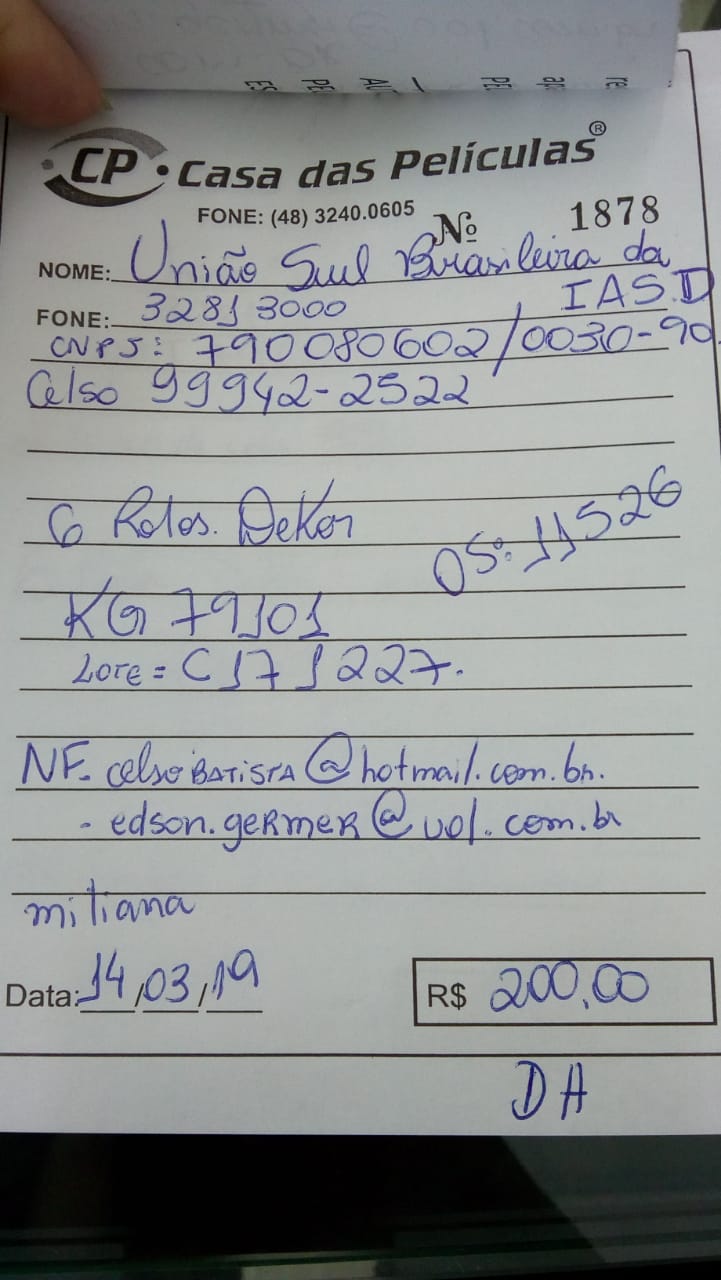 CP • Casa das Películas®
FONE: (48) 3240.0605
Nº 1878
NOME: União Sul Brasileira da
IAS.D
FONE: 3281 3000
CNPJ: 790080602/0030-90
Celso 99942-2522
6 Rolos. DeKor
OS: 11526
KG 79101
Lote = C171227.
NF. celsoBATISTA@hotmail.com.br.
- edson.germer@uol.com.br
mitiana
Data: 14/03/19
R$ 200,00
DH